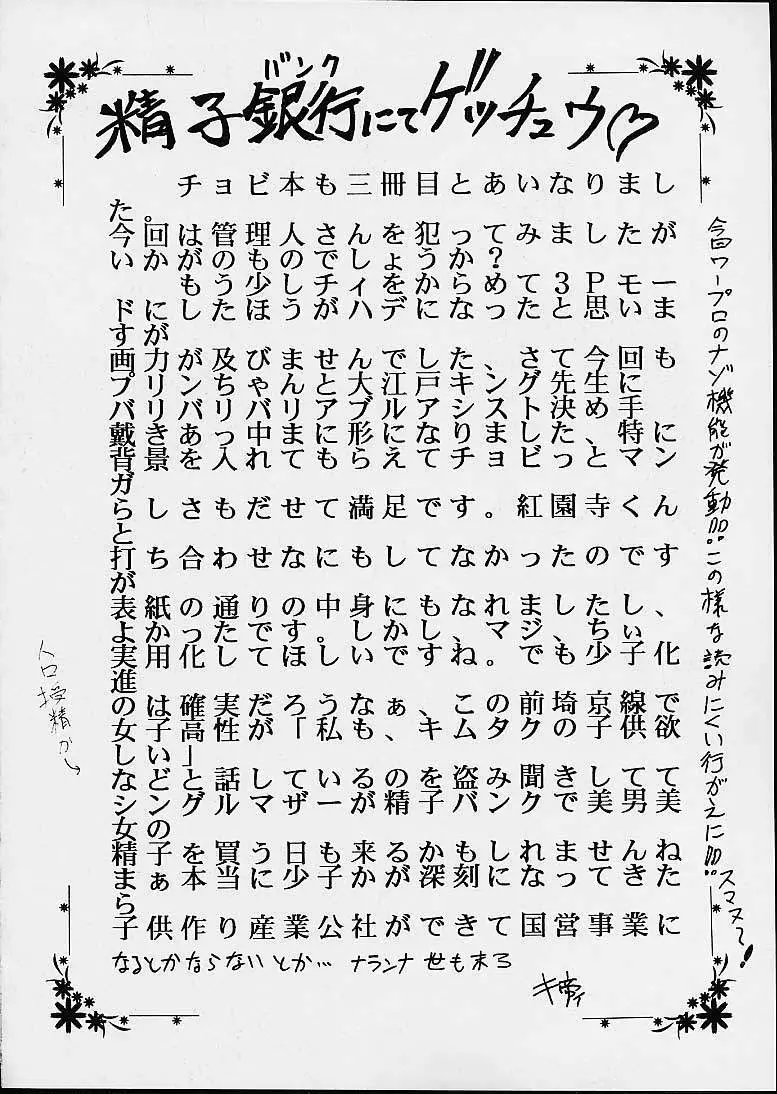 精子銀行にてゲッチュウ♡
バンク
チョビ本も三冊目とあいなりまし
た。
今回は管理人さんを犯ってみましたが
いかがのものでしょうか?
もう少しチィをからめて3Pモ一
ドにしたほうがハデになったと思いま
すが
画力が及びませんでした、さて今回も
プリンちゃんと大江戸キング先生に
バリバリバリアブルアシスト決め手
戴きあっ中まに形になりました、特に
背景を人れてもらえてチョビッとマン
ガ
らしさもだせて満足です。紅園寺くん
と
打ち合わせなにもしてなかったのです
が
表紙の通りの中身にもなれましたし、
よかったです。しかし、マジ、ちぃ
実用化してほしいですね。でも少子化
進
のは確実だろうなぁ、この前埼京線で
女子高性が「私も、キムタクの子供欲
しい」
などと話しているのを盗み聞きしてて
シングルマザ一が精子バンクで美男美
女の
精子を買う日も来るかもしれませんね
まぁ本当に少子かが深刻になってきた
ら
子供作り産業公社ができて国営事業に
なるとかならないとか… ナランナ 世も末ろ
今回ワープロのナゾ機能が発動!!!この様な読みにくい行がえに!!!スマヌ〜!
人口授精か→